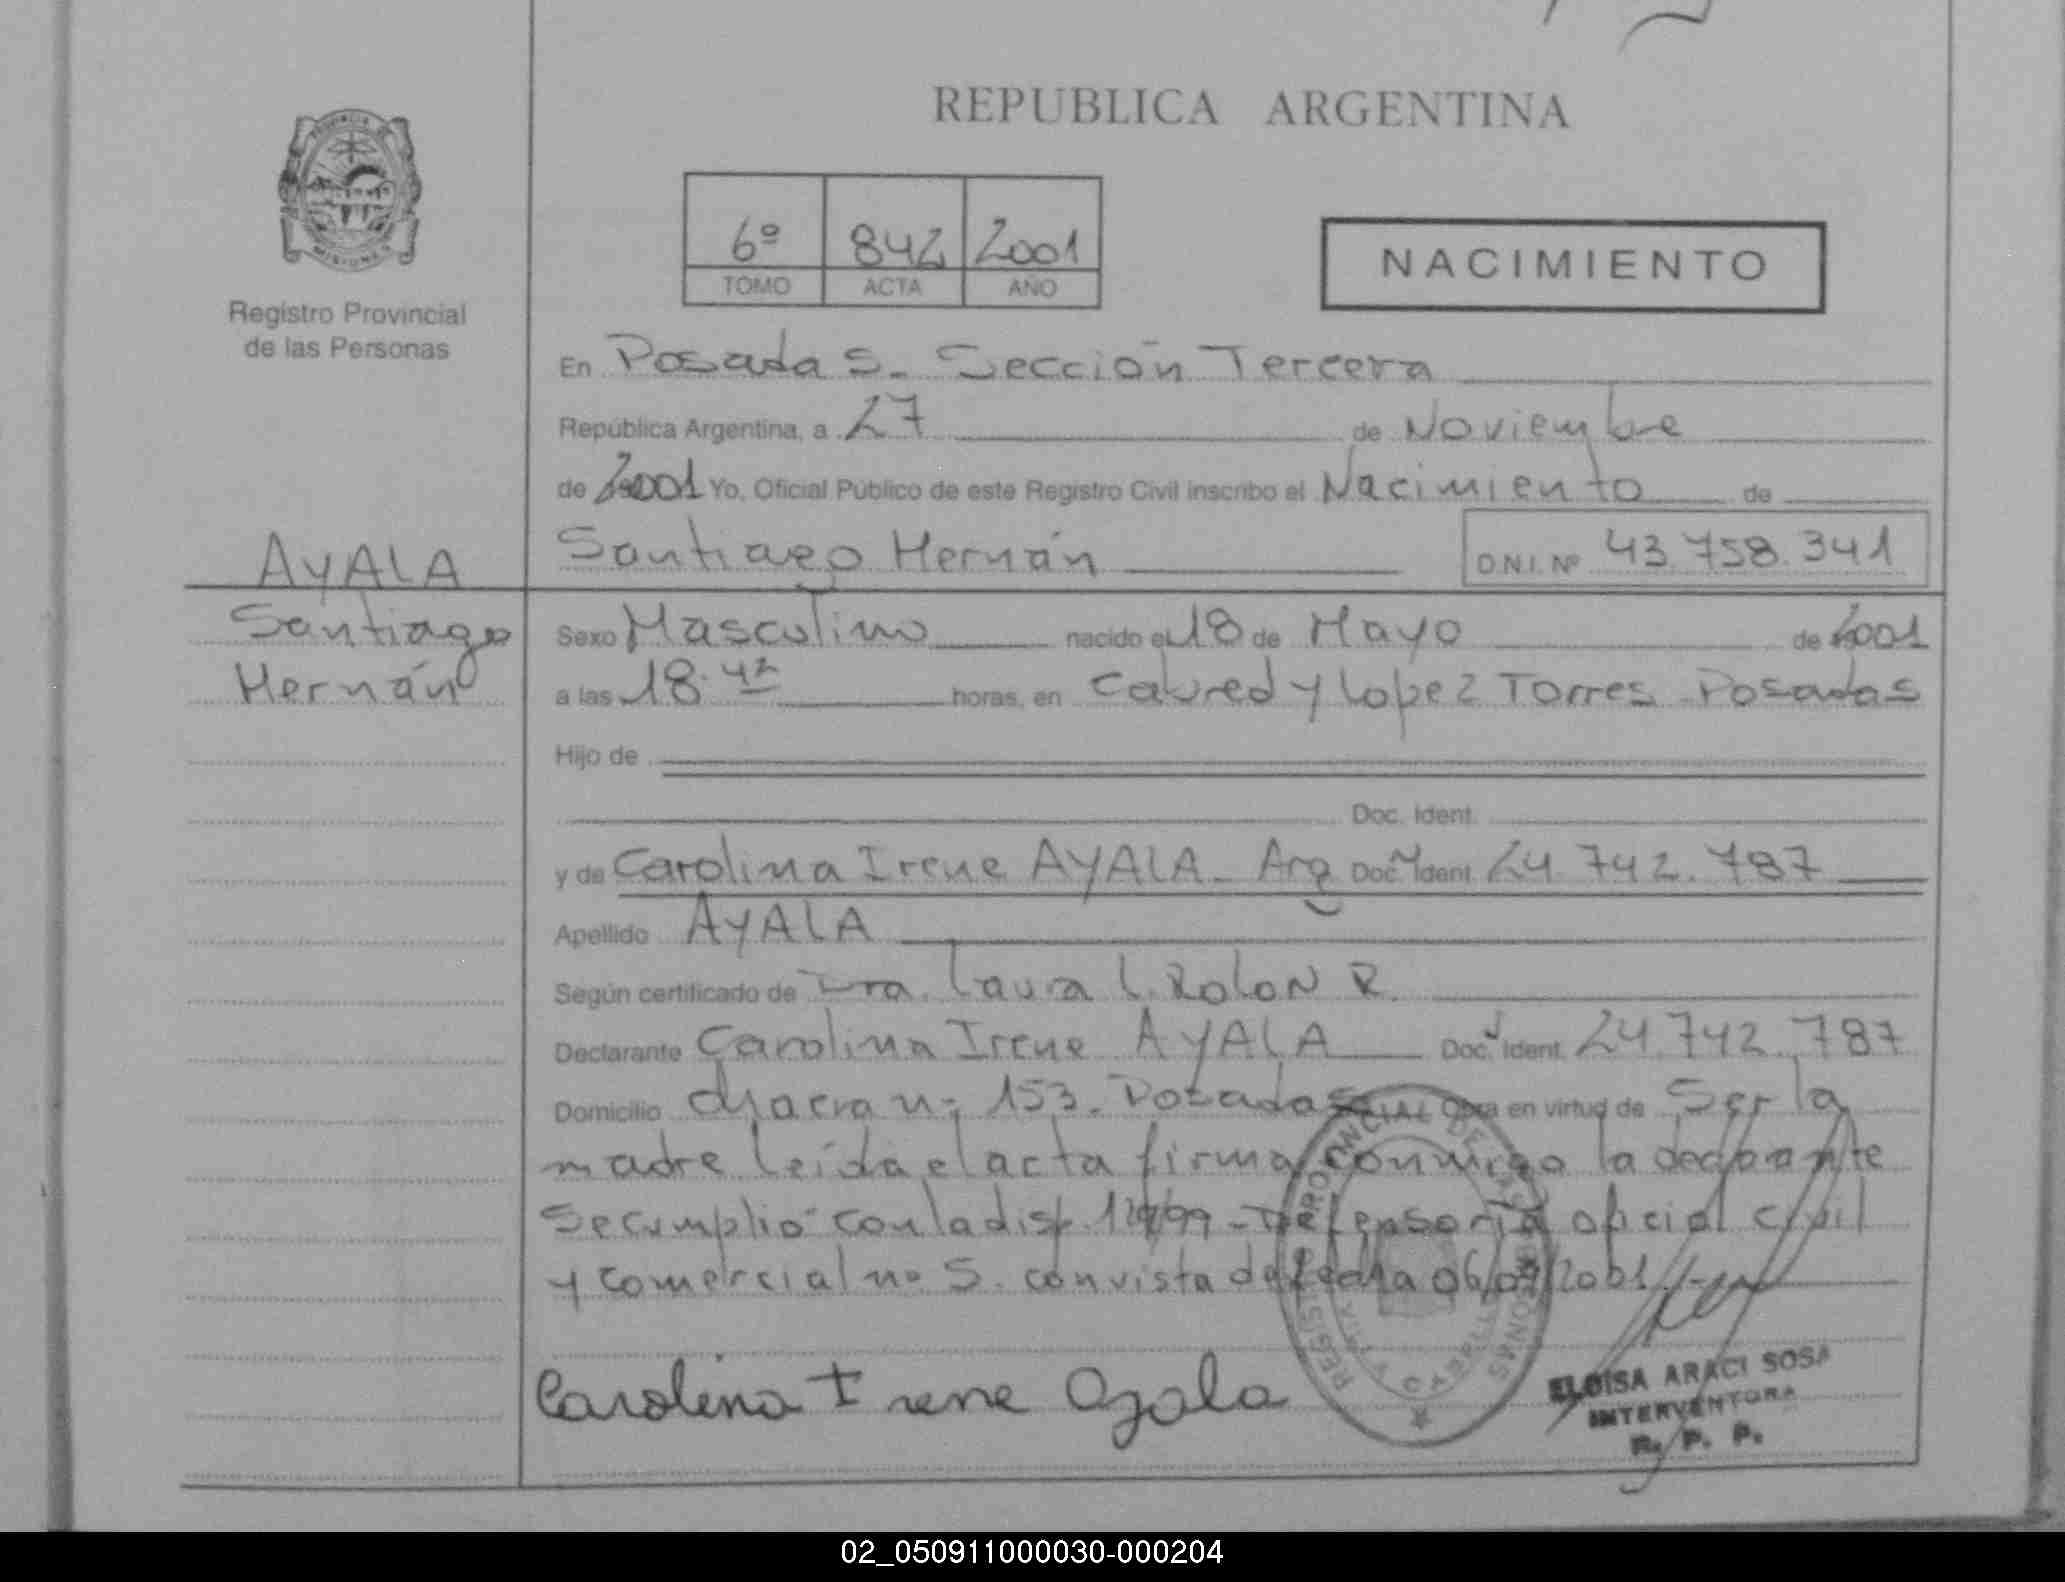 REPUBLICA ARGENTINA
PROVINCIA DE
MISIONES
Registro Provincial
de las Personas
6º 842 2001
TOMO ACTA AÑO
NACIMIENTO
En Posadas - Sección Tercera
República Argentina, a 27 de Noviembre
de 2001 Yo, Oficial Público de este Registro Civil inscribo el Nacimiento de
Santiago Hernán D.N.I. Nº 43.758.341
AYALA
Santiago
Hernán
Sexo Masculino nacido el 18 de Mayo de 2001
a las 18: horas, en Cabred y Lopez Torres - Posadas
Hijo de
Doc. Ident.
y de Carolina Irene AYALA - Arg Doc. Ident. 24.742.787
Apellido AYALA
Según certificado de Dra. Laura L. Rolon R.
Declarante Carolina Irene AYALA Doc. Ident. 24.742.787
Domicilio chacra nº 153. Posadas Obra en virtud de Ser la
madre leída el acta firma conmigo la declarante
Se cumplio con la disp. - Defensoria oficial civil
y comercial nº 5. con vista de fecha 2001
Carolina Irene Ayala
REGISTRO PROVINCIAL DE LAS PERSONAS
ELOISA ARACI SOSA
INTERVENTORA
R. P. P.
02_050911000030-000204